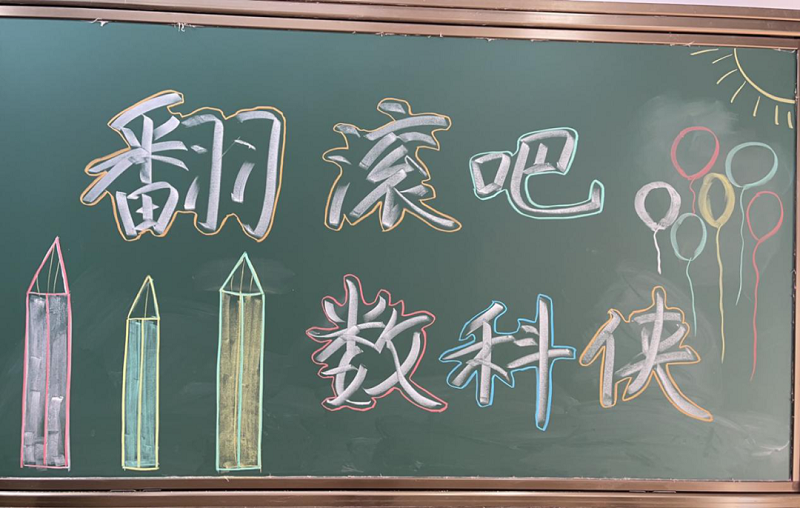 翻滚吧
数科侠